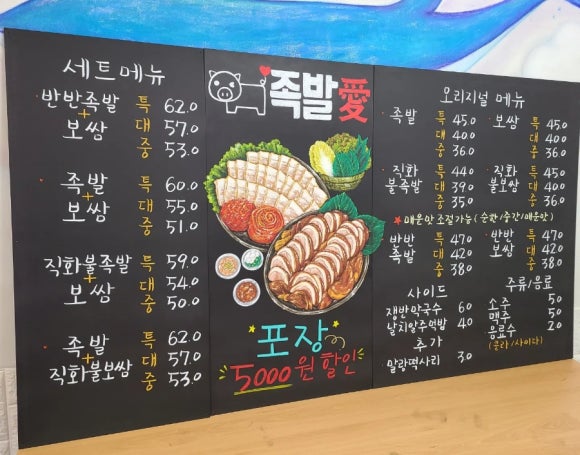 세트메뉴
반반족발 특 62.0
+ 대 57.0
보쌈 중 53.0
족발 특 60.0
+ 대 55.0
보쌈 중 51.0
직화불족발 특 59.0
+ 대 54.0
보쌈 중 50.0
족발 특 62.0
+ 대 57.0
직화불보쌈 중 53.0
족발愛
포장
5000원 할인
오리지널 메뉴
족발 특 45.0 보쌈 특 45.0
대 40.0 대 40.0
중 36.0 중 36.0
직화 특 44.0 직화 특 45.0
불족발 대 39.0 불보쌈 대 40.0
중 35.0 중 36.0
★매운맛 조절가능(순한/중간/매운맛)
반반 특 47.0 반반 특 47.0
족발 대 42.0 보쌈 대 42.0
중 38.0 중 38.0
사이드
쟁반막국수 6.0
날치알주먹밥 4.0
추가
말랑떡사리 3.0
주류/음료
소주 5.0
맥주 5.0
음료수 2.0
(콜라/사이다)